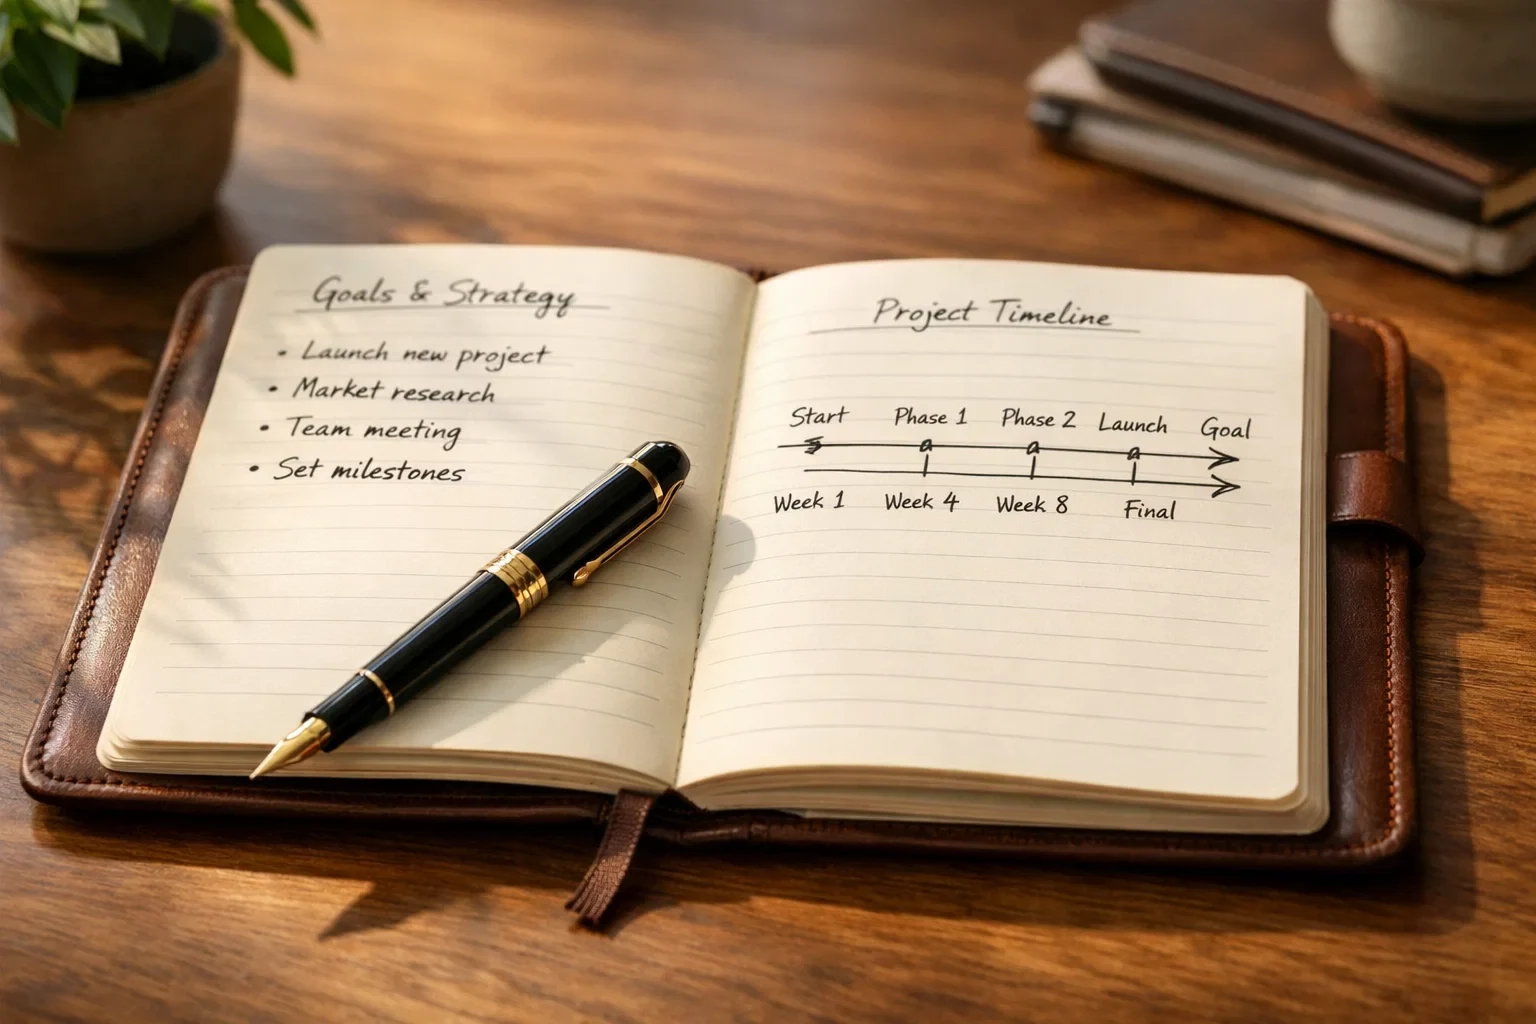 Goals & Strategy
• Launch new project
• Market research
• Team meeting
• Set milestones
Project Timeline
Start Phase 1 Phase 2 Launch Goal
Week 1 Week 4 Week 8 Final